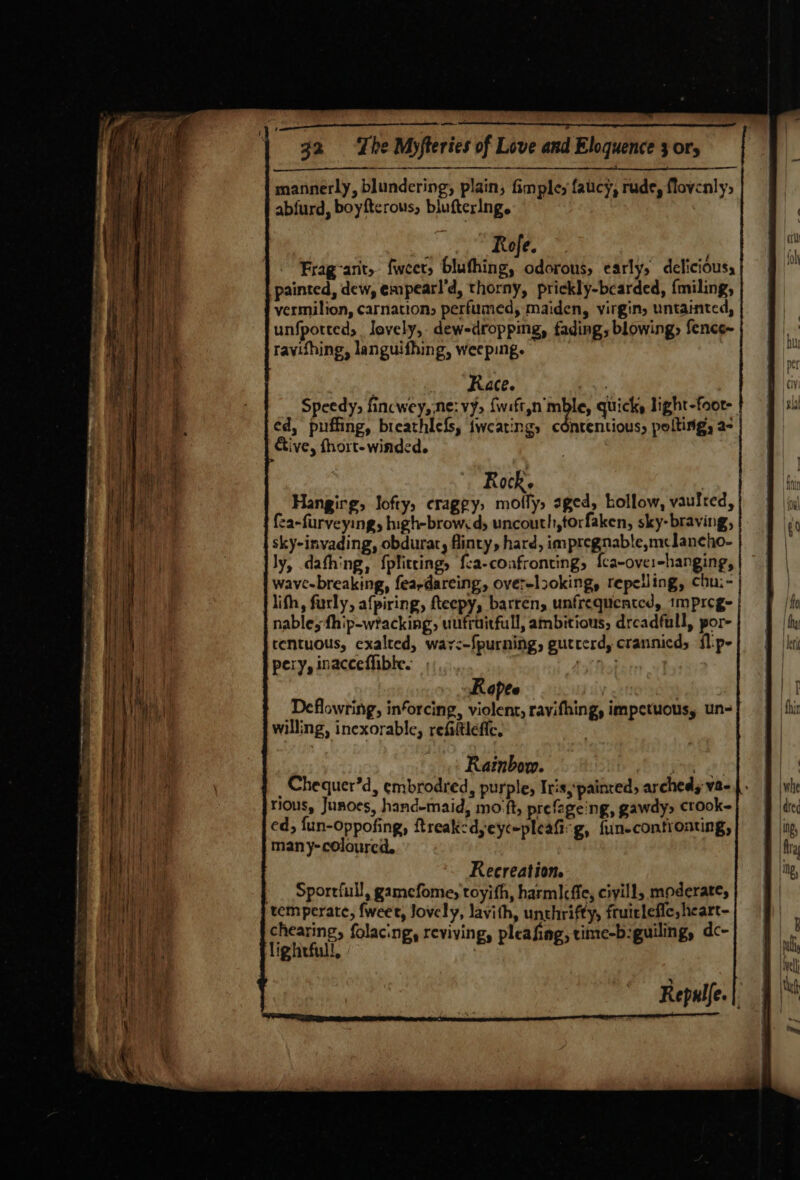 32 The Myſteries of Love and Eloquence ; or,
mannerly, blundering, plain, ſimple, ſaucy, rude, ſlovenly,
abſurd, boyſterous, bluſterIng.
Roſe.
Fragrant, ſweet, bluſhing, odorous, early, delicious,
painted, dew, empearl'd, thorny, prickly-bearded, ſmiling,
vermilion, carnation, perfumed, maiden, virgin, untainted,
unſpotted, lovely, dew-dropping, fading, blowing, ſence-
raviſhing, languiſhing, weeping.
Race.
Speedy, ſinewey, nervy, ſwift, nimble, quick, light-foot-
ed, puffing, breathleſs, ſweating, contentious, polting, a-
ctive, ſhort-winded.
Rock.
Hanging, lofty, craggy, moſſy, aged, hollow, vaulted,
ſea-ſurveying, high-browed, uncouth, forſaken, sky-braving,
sky-invading, obdurat, flinty, hard, impregnable, melancho-
ly, daſhing, ſplitting, ſea-confronting, ſea-over-hanging,
wave-breaking, fear-dareing, over-looking, repelling, chur-
liſh, ſurly, aſpiring, ſteepy, barren, unfrequented, impreg-
nable, ſhip-wracking, unfruitfull, ambitious, dreadfull, por-
tentuous, exalted, wave-ſpurning, gutterd, crannied, ſlip-
pery, inacceſſible.
Rape.
Deflowring, inforcing, violent, raviſhing, impetuous, un-
willing, inexorable, reſiſtleſſe.
Rainbow.
Chequer'd, embrodred, purple, Iris, painted, arched, va-
rious, Junoes, hand-maid, moiſt, preſageing, gawdy, crook-
ed, ſun-oppoſing, ſtreaked, eye-pleaſing, ſun-confronting,
many-coloured.
Recreation.
Sportfull, gameſome, toyiſh, harmleſſe, civill, moderate,
temperate, ſweet, lovely, laviſh, unthrifty, fruitleſſe, heart-
chearing, ſolacing, reviving, pleaſing, time-beguiling, de-
lightfull.
Repulſe.